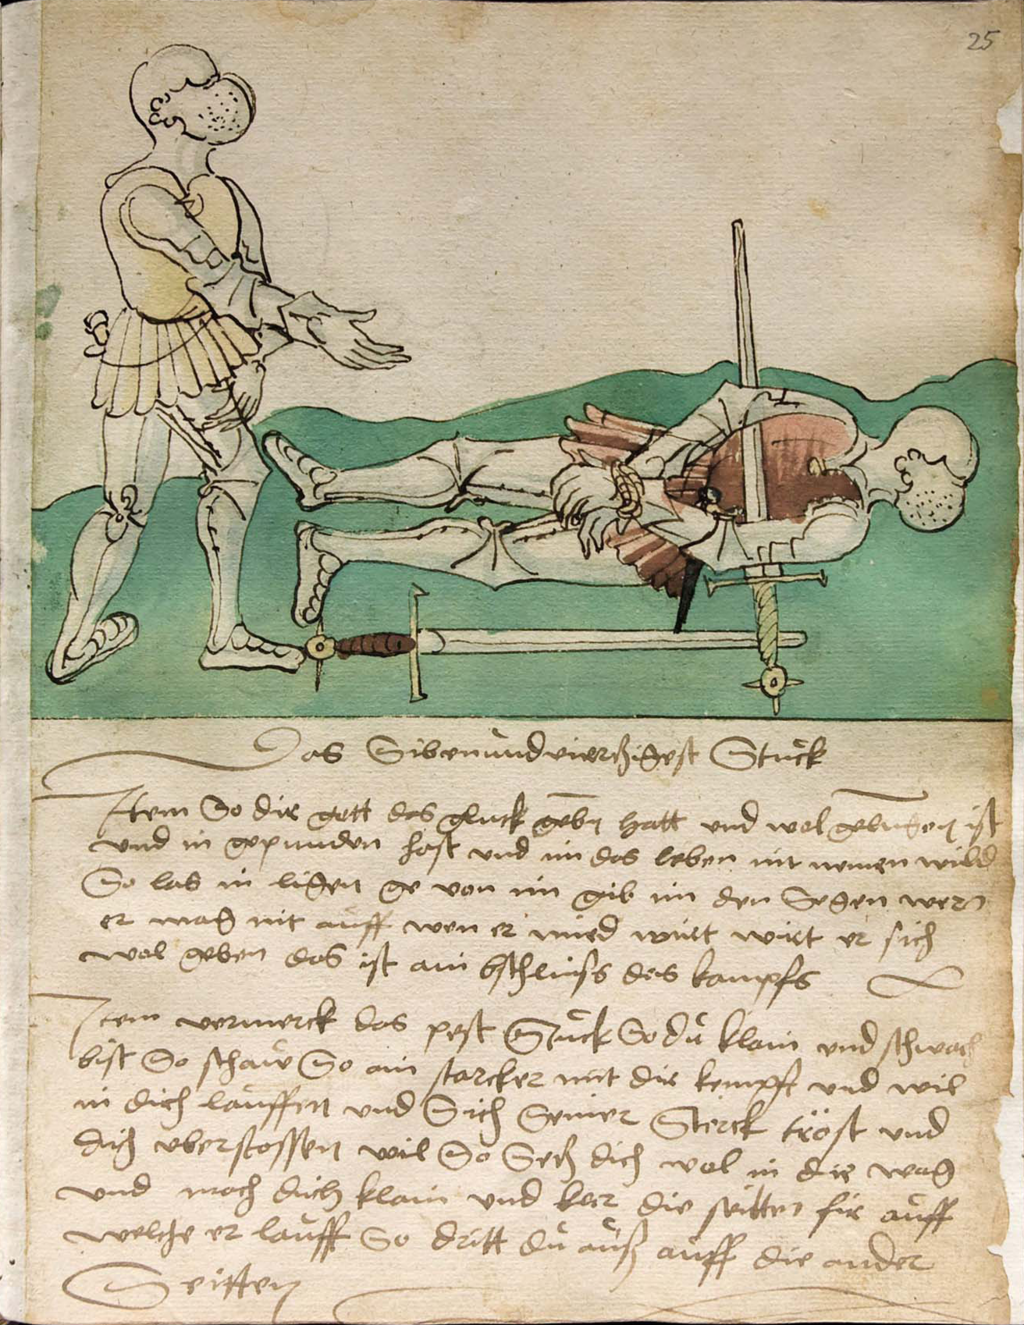 25
Das Sibenundvierczigest Stuck
Item So dir gott das gluck geben hatt und wol gelungen ist
und in gepunden hast und im das leben nit nemen wild
So las in ligen ge von im gib im den Segen wern
er mag nit auff wen er mied wirt er sich
wol geben das ist ain bschluss des kampfs
Item vermerck das pest Stuck So du klain und schwach
bist So schaw So ain starcker mit dir kempft und wil
in dich lauffen und Sich Seiner Sterck tröst und
dich uberstossen wil So Secz dich wol in die wag
und mach dich klain und ker die seitten fir auff
welche er lauff So dritt du auß auff die ander
Seitten